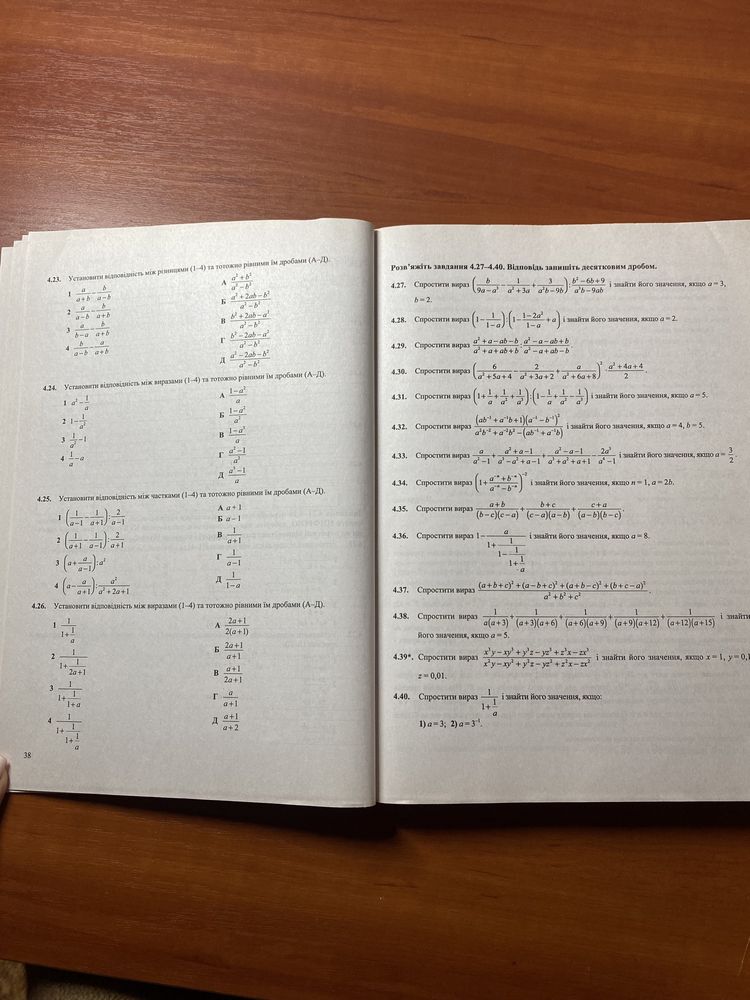 4.23. Установити відповідність між різницями (1–4) та тотожно рівними їм дробами (А–Д).
1 a/(a+b) − b/(a−b) А (a²+b²)/(a²−b²)
2 a/(a−b) − b/(a+b) Б (a²+2ab−b²)/(a²−b²)
3 a/(b−a) − b/(a+b) В (b²+2ab−a²)/(a²−b²)
4 b/(a−b) − a/(a+b) Г (b²−2ab−a²)/(a²−b²)
Д (a²−2ab−b²)/(a²−b²)
4.24. Установити відповідність між виразами (1–4) та тотожно рівними їм дробами (А–Д).
1 a² − 1/a А (1−a²)/a
2 1 − 1/a² Б (1−a²)/a²
3 1/a² − 1 В (1−a³)/a
4 1/a − a Г (a²−1)/a²
Д (a³−1)/a
4.25. Установити відповідність між частками (1–4) та тотожно рівними їм дробами (А–Д).
1 (1/(a−1) − 1/(a+1)) : 2/(a−1) А a+1
2 (1/(a+1) − 1/(a−1)) : 2/(a+1) Б a−1
3 (a + a/(a−1)) : a² В 1/(a+1)
4 (a − a/(a+1)) : a²/(a²+2a+1) Г 1/(a−1)
Д 1/(1−a)
4.26. Установити відповідність між виразами (1–4) та тотожно рівними їм дробами (А–Д).
1 1/(1+1/a) А (2a+1)/(2(a+1))
2 1/(1+1/(2a+1)) Б (2a+1)/(a+1)
3 1/(1+1/(1+a)) В (a+1)/(2a+1)
4 1/(1+1/(1+1/a)) Г a/(a+1)
Д (a+1)/(a+2)
38
Розв’яжіть завдання 4.27–4.40. Відповідь запишіть десятковим дробом.
4.27. Спростити вираз (b/(9a−a³) − 1/(a²+3a) + 3/(a²b−9b)) : (b²−6b+9)/(a³b−9ab) і знайти його значення, якщо a = 3,
b = 2.
4.28. Спростити вираз (1 − 1/(1−a)) : (1 − (1−2a²)/(1−a) + a) і знайти його значення, якщо a = 2.
4.29. Спростити вираз (a²+a−ab−b)/(a²+a+ab+b) : (a²−a−ab+b)/(a²−a+ab−b).
4.30. Спростити вираз (6/(a²+5a+4) − 2/(a²+3a+2) + a/(a²+6a+8))² · (a²+4a+4)/2.
4.31. Спростити вираз (1 + 1/a + 1/a² + 1/a³) : (1 − 1/a + 1/a² − 1/a³) і знайти його значення, якщо a = 5.
4.32. Спростити вираз (ab⁻¹+a⁻¹b+1)(a⁻¹−b⁻¹)²/(a²b⁻²+a⁻²b²−(ab⁻¹+a⁻¹b)) і знайти його значення, якщо a = 4, b = 5.
4.33. Спростити вираз a/(a²−1) + (a²+a−1)/(a³−a²+a−1) + (a²−a−1)/(a³+a²+a+1) − 2a³/(a⁴−1) і знайти його значення, якщо a = 3/2.
4.34. Спростити вираз (1 + (a⁻ⁿ+b⁻ⁿ)/(a⁻ⁿ−b⁻ⁿ))⁻² і знайти його значення, якщо n = 1, a = 2b.
4.35. Спростити вираз (a+b)/((b−c)(c−a)) + (b+c)/((c−a)(a−b)) + (c+a)/((a−b)(b−c)).
4.36. Спростити вираз 1 − a/(1+1/(1−1/(1+1/a))) і знайти його значення, якщо a = 8.
4.37. Спростити вираз ((a+b+c)²+(a−b+c)²+(a+b−c)²+(b+c−a)²)/(a²+b²+c²).
4.38. Спростити вираз 1/(a(a+3)) + 1/((a+3)(a+6)) + 1/((a+6)(a+9)) + 1/((a+9)(a+12)) + 1/((a+12)(a+15)) і знайти
його значення, якщо a = 5.
4.39*. Спростити вираз (x³y−xy³+y³z−yz³+z³x−zx³)/(x²y−xy²+y²z−yz²+z²x−zx²) і знайти його значення, якщо x = 1, y = 0,1
z = 0,01.
4.40. Спростити вираз 1/(1+1/a) і знайти його значення, якщо:
1) a = 3; 2) a = 3⁻¹.